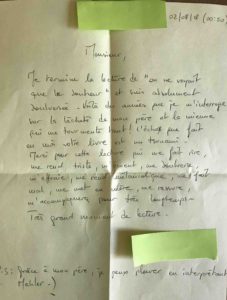 02/08/18 (00:50)
Monsieur,
Je termine la lecture de "on ne voyait
que le bonheur" et suis absolument
bouleversée. Voilà des années que je m'interroge
sur la lâcheté de mon père et la mienne
qui me tourmente tant! L'écho que fait
en moi votre livre est un tsunami.
Merci pour cette lecture qui me fait rire,
me rend triste, me bouleverse,
m'effraie, me rend mélancolique, me fait
mal, me met en colère, me rassure,
m'accompagnera pour très longtemps.
Très grand moment de lecture.
P.S: Grâce à mon père, je peux pleurer en interprétant
Mahler -)